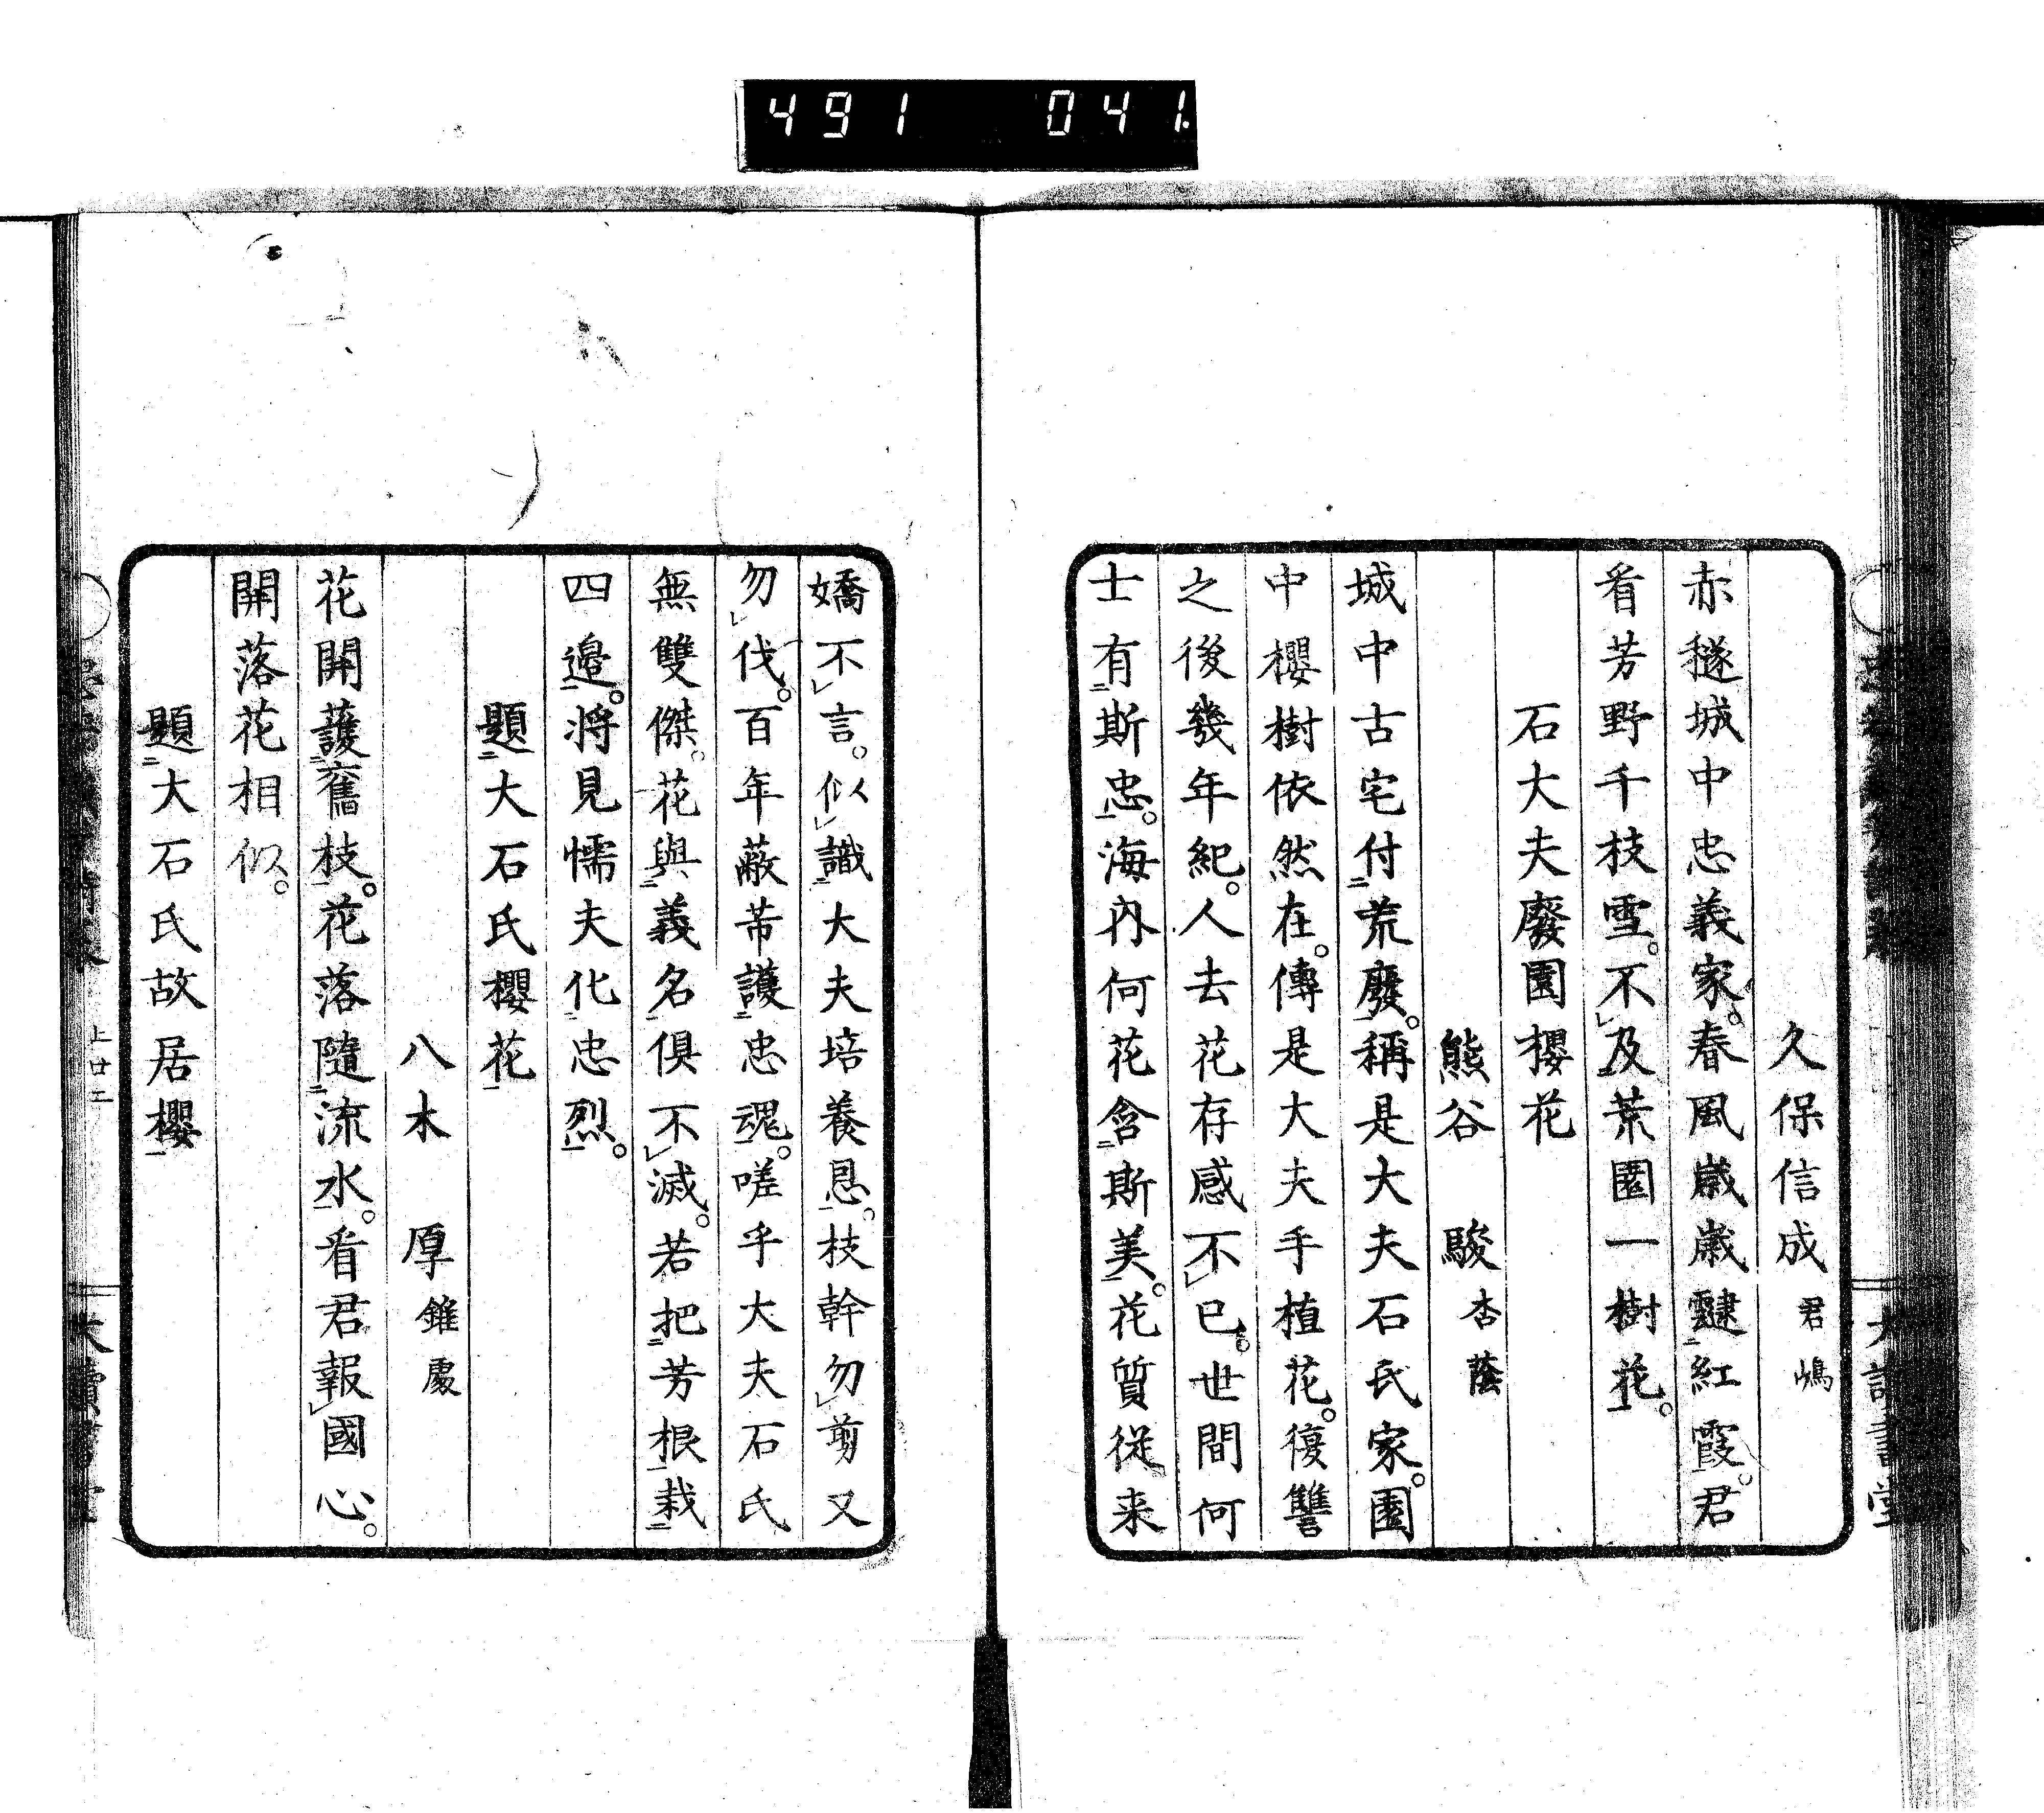 491 041
久保信成 君嶋
赤穟城中忠義家。春風歳歳靆紅霞。君
看芳野千枝雪。不及荒園一樹花。
石大夫廢園櫻花
熊谷 駿 杏蔭
城中古宅付荒廢。稱是大夫石氏家。園
中櫻樹依然在。傳是大夫手植花。復讐
之後幾年紀。人去花存感不已。世間何
士有斯忠。海內何花含斯美。花質從来
嬌不言。似識大夫培養恩。枝幹勿剪又
勿伐。百年蔽芾護忠魂。嗟乎大夫石氏
無雙傑。花與義名俱不滅。若把芳根栽
四邉。将見懦夫化忠烈。
題大石氏櫻花
八木 厚 錐處
花開護舊枝。花落隨流水。看君報國心。
開落花相似。
題大石氏故居櫻
上廿二